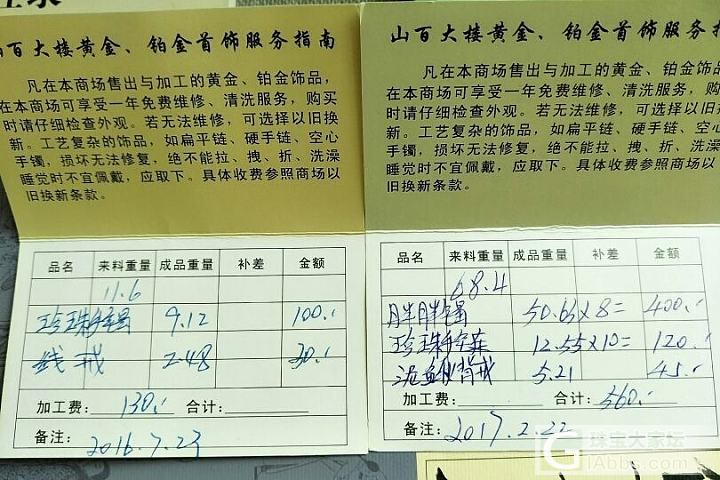 山百大楼黄金、铂金首饰服务指南
凡在本商场售出与加工的黄金、铂金饰品,
在本商场可享受一年免费维修、清洗服务，购买
时请仔细检查外观。若无法维修，可选择以旧换
新。工艺复杂的饰品，如扁平链、硬手链、空心
手镯，损坏无法修复，绝不能拉、拽、折、洗澡
睡觉时不宜佩戴，应取下。具体收费参照商场以
旧换新条款。
品名 来料重量 成品重量 补差 金额
11.6
珍珠手镯 9.12 100.
钱戒 2.48 30.
加工费: 130. 合计:
备注: 2016.7.23
山百大楼黄金、铂金首饰服务指
凡在本商场售出与加工的黄金、铂金饰品，
在本商场可享受一年免费维修、清洗服务，购买
时请仔细检查外观。若无法维修，可选择以旧换
新。工艺复杂的饰品，如扁平链、硬手链、空心
手镯，损坏无法修复，绝不能拉、拽、折、洗澡
睡觉时不宜佩戴，应取下。具体收费参照商场以
旧换新条款。
品名 来料重量 成品重量 补差 金额
68.4
胖胖镯 50.63×8= 400.
珍珠 12.55×10= 120.
泥鳅背戒 5.21 45.
加工费: 合计: 560.
备注: 2017.2.22
珠宝大家坛
iAbbs.com